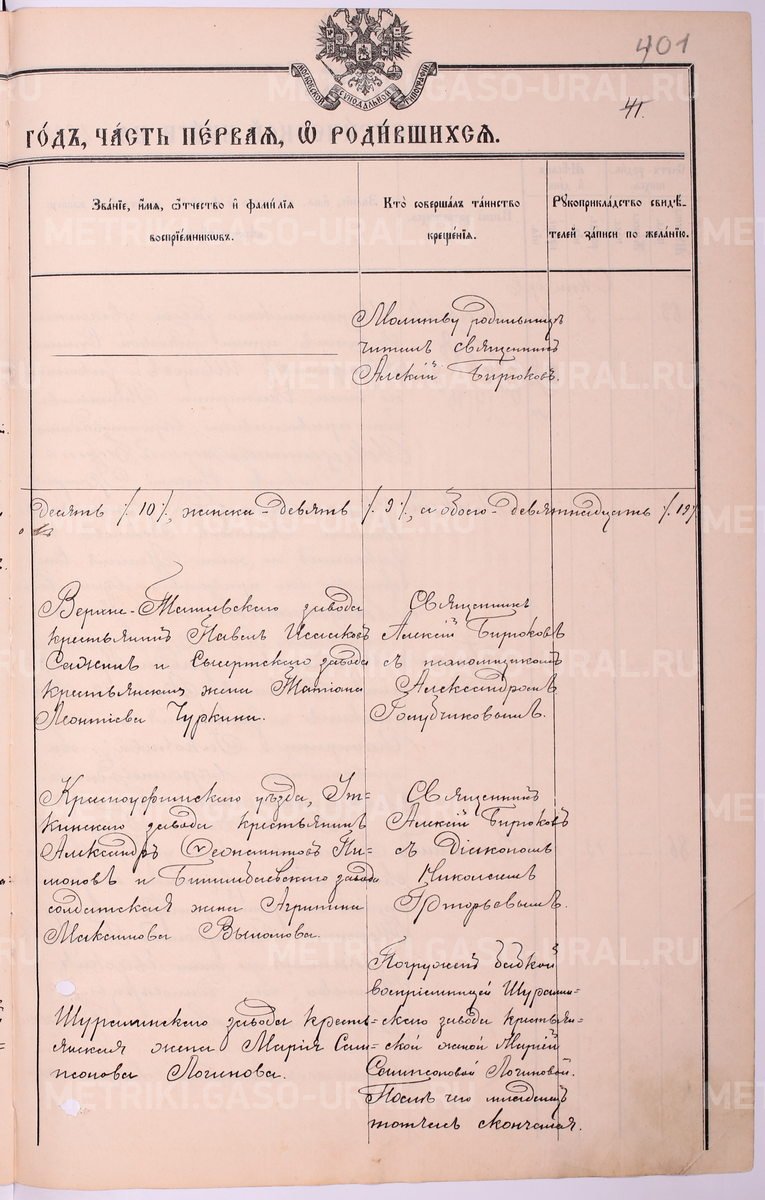 401
41.
МОСКОВСКОЙ СѴНОДАЛЬНОЙ ТИПОГРАФІИ
ГО́ДЪ, ЧА́СТЬ ПЕ́РВАЯ, Ѡ҆ РОДИ́ВШИХСЯ.
Зва́нїе, и҆́мя, ѻ҆́тчество и҆ фами́лїя
воспрїе́мникѡвъ.
Кто̀ соверша́лъ та́инство
креще́нїя.
Рꙋкоприкла́дство свидѣ́-
телей за́писи по жела́нїю.
Молитву родильницѣ
читалъ священникъ
Алексій Бирюковъ.
десять /. 10 /., женска - девять /. 9 /., а обоего - девятнадцать /. 19 /.
Верхне-Тагильскаго завода
крестьянинъ Павелъ Исааковъ
Сажинъ и Сысертскаго завода
крестьянская жена Татіана
Леонтіева Чуркина.
Священникъ
Алексій Бирюковъ
съ псаломщикомъ
Александромъ
Голубчиковымъ.
Красноуфимскаго уѣзда, Ут-
кинскаго завода крестьянинъ
Александръ Ѳеоктистовъ Пи-
моновъ и Билимбаевскаго завода
солдатская жена Агрипина
Максимова
Священникъ
Алексій Бирюковъ
съ Діакономъ
Николаемъ
Григорьевымъ.
Шуралинскаго завода кресть-
янская жена Марія Сам-
псонова Логинова.
Погруженъ бабкой
воспріемницей Шуралин-
скаго завода крестьян-
ской женой Маріей
Сампсоновой Логиновой.
Послѣ чего младенецъ
тотчасъ скончался.
METRIKI.GASO-URAL.RU